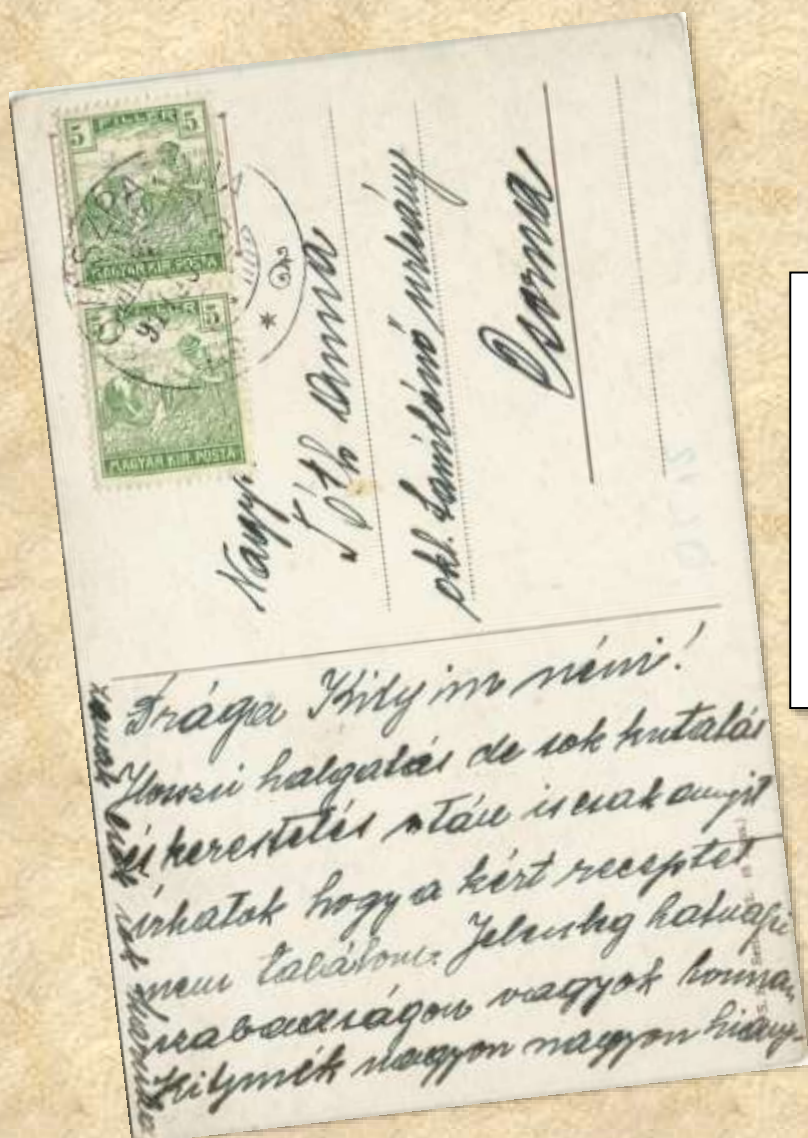 5 FILLÉR 5
MAGYAR KIR. POSTA
5
MAGYAR KIR. POSTA
Nagys.
Tóth Anna
okl. tanítónő urleány
Csorna
Drága Kity im néni!
Hosszú halgatás de sok kutatás
és kerestetés után is csak anyit
irhatok hogy a kért receptet
nem találom. Jelenleg hatnapi
szabadságon vagyok honnan
Kitymék nagyon nagyon hiany-
zanak sok